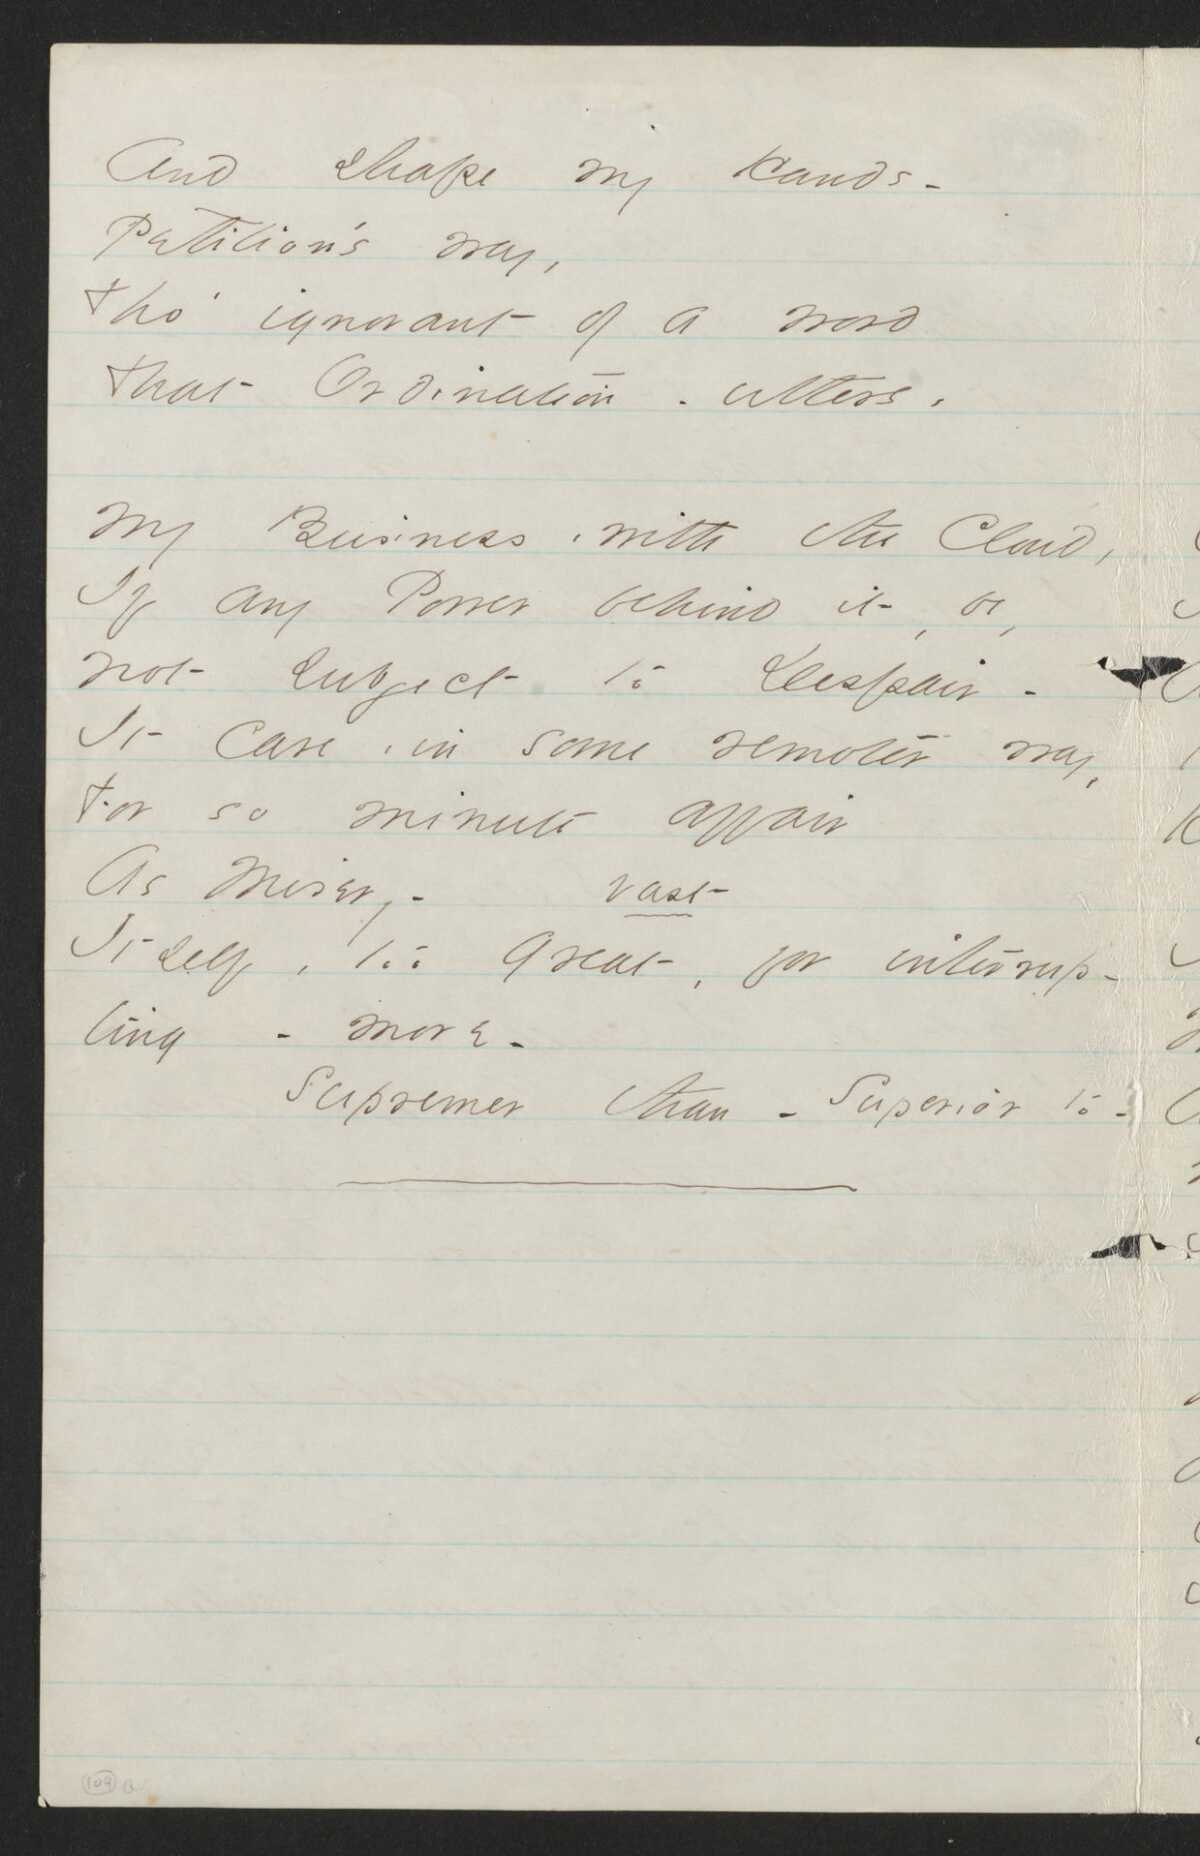 And shape my Hands -
Petition's way,
Tho' ignorant of a word
That Ordination - utters.
My Business, with the Cloud,
If any Power behind it, be,
Not subject to Despair -
It care, in some remoter way,
For so minute affair
As Misery - vast
Itself, too Great, for interrup-
ting - more -
Supremer than - Superior to -
104